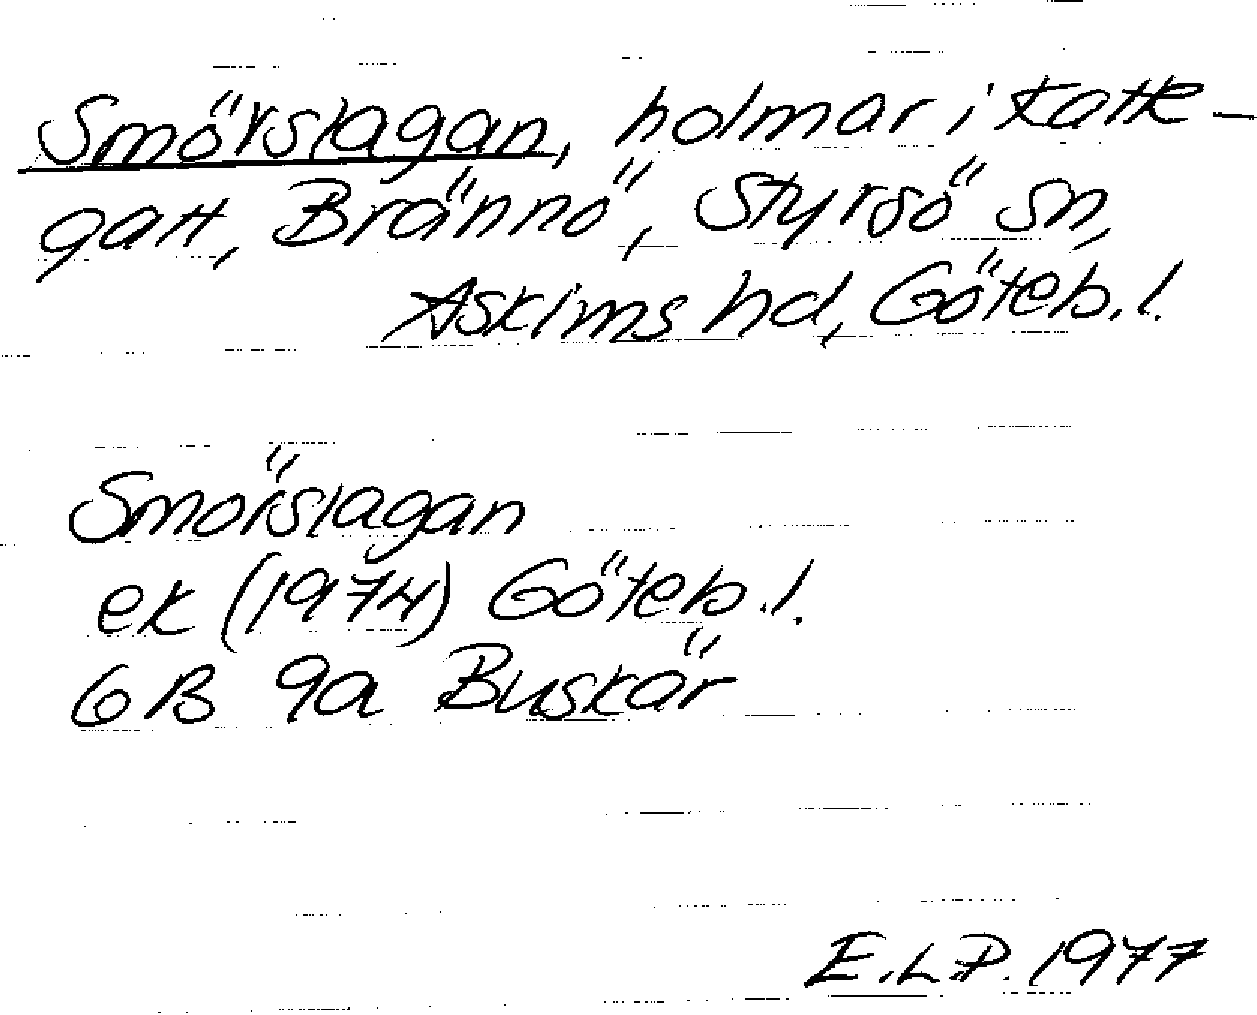 Smörslagan, holmar i Katte-
gatt, Brännö, Styrsö sn,
Askims hd, Göteb. l.
Smörslagan
ek (1974) Göteb. l.
6B 9a Buskär
E.L.P. 1977